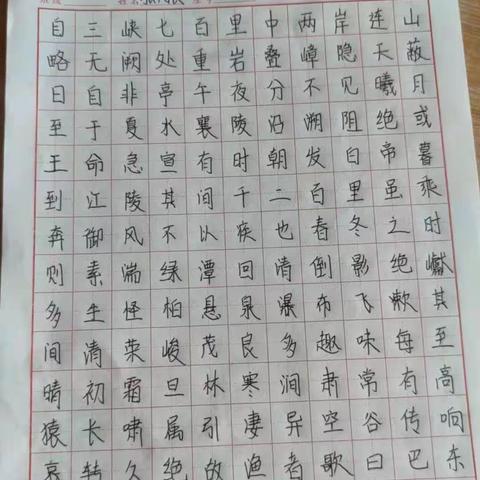 自三峡七百里中两岸连山
略无阙处重岩叠嶂隐天蔽
日自非亭午夜分不见曦月
至于夏水襄陵沿溯阻绝或
王命急宣有时朝发白帝暮
到江陵其间千二百里虽乘
奔御风不以疾也春冬之时
则素湍绿潭回清倒影绝巘
多生怪柏悬泉瀑布飞漱其
间清荣峻茂良多趣味每至
晴初霜旦林寒涧肃常有高
猿长啸属引凄异空谷传响
哀转久绝故渔者歌曰巴东